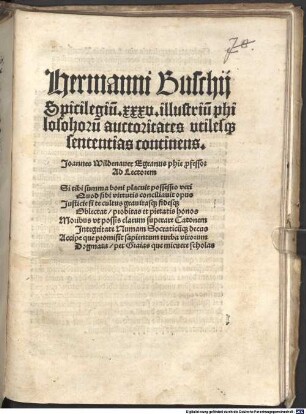 Hermanni Buschij
Spicilegiū .xxxv. illustriū phi
losophorū auctoritates utilesqꝫ
sententias continens.
Joannes Wildenawer Egranus phie ꝓfessor
Ad Lectorem
Si tibi summa boni placuit possessio veri
Quod sibi virtutis conciliauit opus
Justicie si te cultus grauitasqꝫ fidesqꝫ
Oblectat / probitas et pietatis honos
Moribus vt possis clarum superare Catonem
Integritate Numam Socraticūqꝫ decus
Accipe que promisit sapientum turba virorum
Dogmata / per Graias que micuere scholas